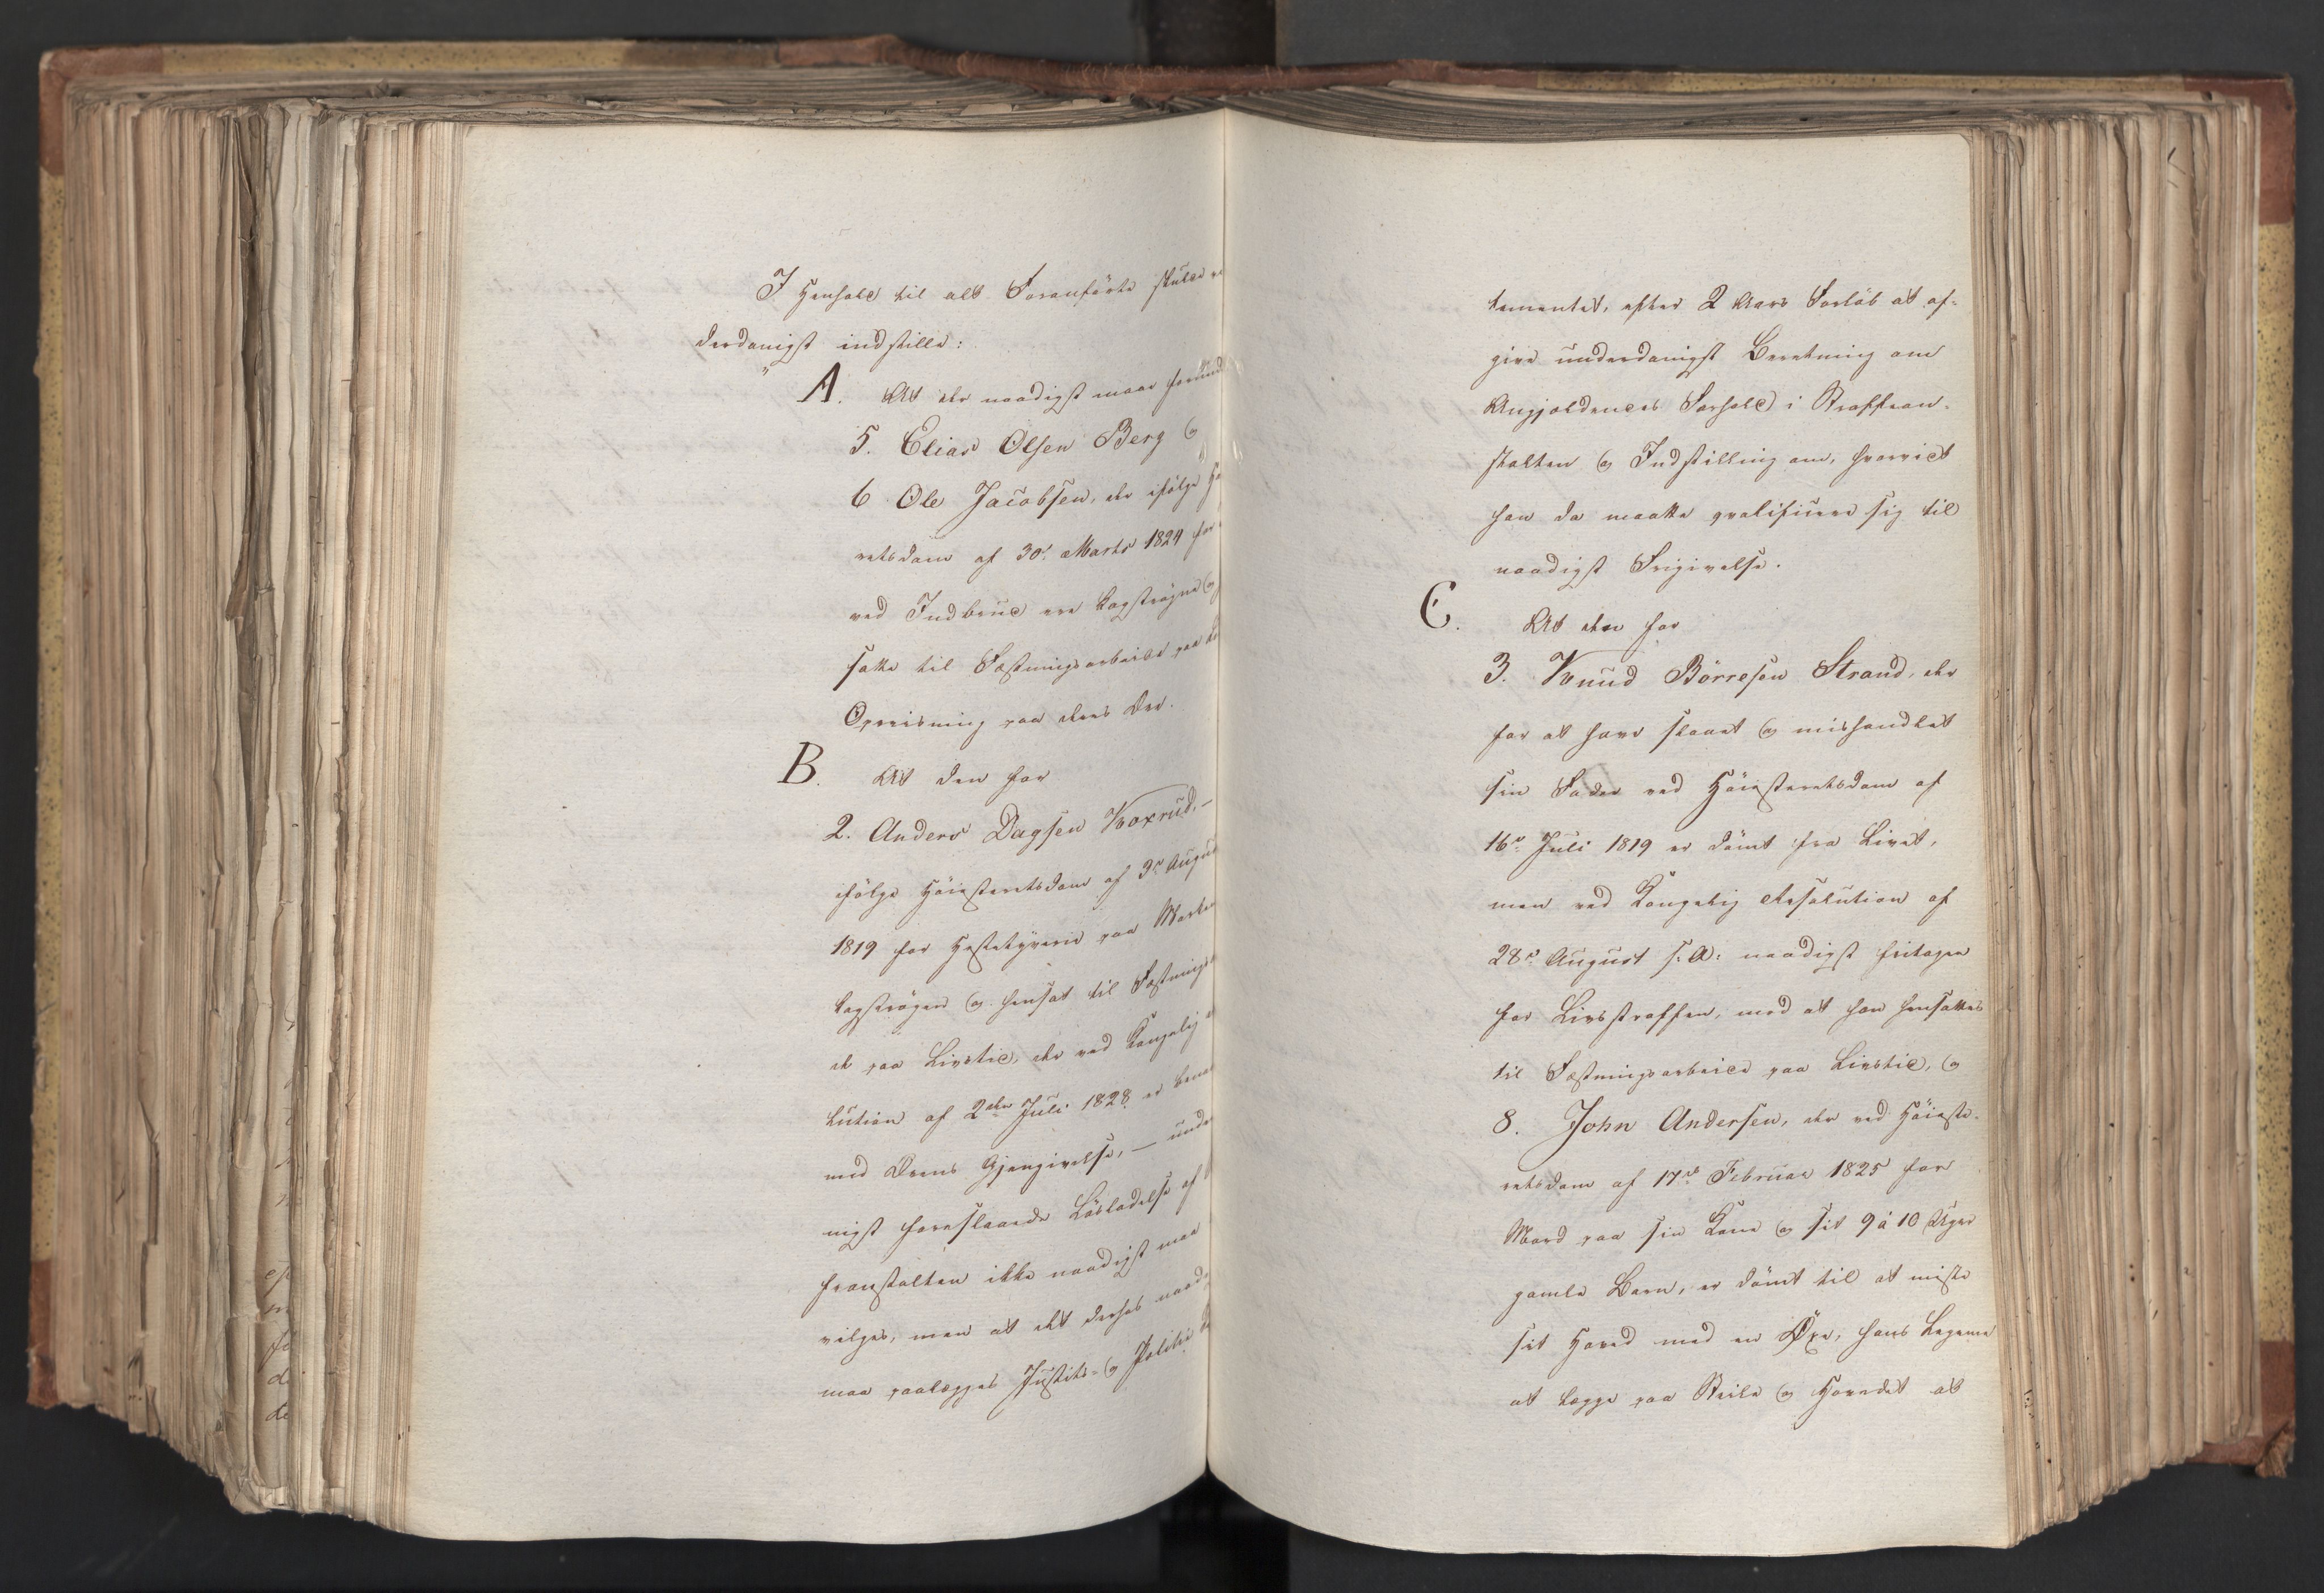 I Henhold til alt Foranførte skulde
derdanigst indstille:
" A. At der naadigst maae
5. Elias Olsen Berg og
6 Ole Jacobsen, der ifølge
retsdom af 30te Marts 1824 for
ved Indbrud ere kagstrøgne og
satte til Fæstningsarbeide paa
Opreisning paa deres Ære.
B. At den for
2. Anders Dagsen Koxrud, –
ifølge Høiesteretsdom af 3die
1819 for Hestetyverie paa Marken
kagstrøgen og hensat til Fæstnings
de paa Livstid, der ved Kongelig
lution af 2den Juli 1828 er
med Ærens Gjengivelse, –
nigst foreslaaede Løsladelse af
franstalten ikke naadigst maa
vilges, men at det derhos
maa paalægges Justits- og Politie
tementet, efter 2 Aars Forløb at af-
give underdanigst Beretning om
Angjældendes Forhold i Straffean-
stalten og Indstilling om, hvorvidt
han da maatte qvalificere sig til
naadigst Frigivelse.
C. At den for
3. Knud Börresen Strand, der
for at have slaaet og mishandlet
sin Fader ved Høiesteretsdom af
16de Juli 1819 er dømt fra Livet,
men ved Kongelig Resolution af
28de August s: A: naadigst fritagen
for Livsstraffen, mod at han hensattes
til Fæstningsarbeide paa Livstid, og
8. John Andersen, der ved Høieste-
retsdom af 17de Februar 1825 for
Mord paa sin Kone og sit 9 à 10 Uger
gamle Barn, er dømt til at miste
sit Hoved med en Øxe, hans Legeme
at lægge paa Steile og Hovedet at